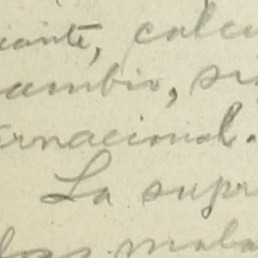 iante, calcu
ambio, si
ernacional.
La supr
los mala